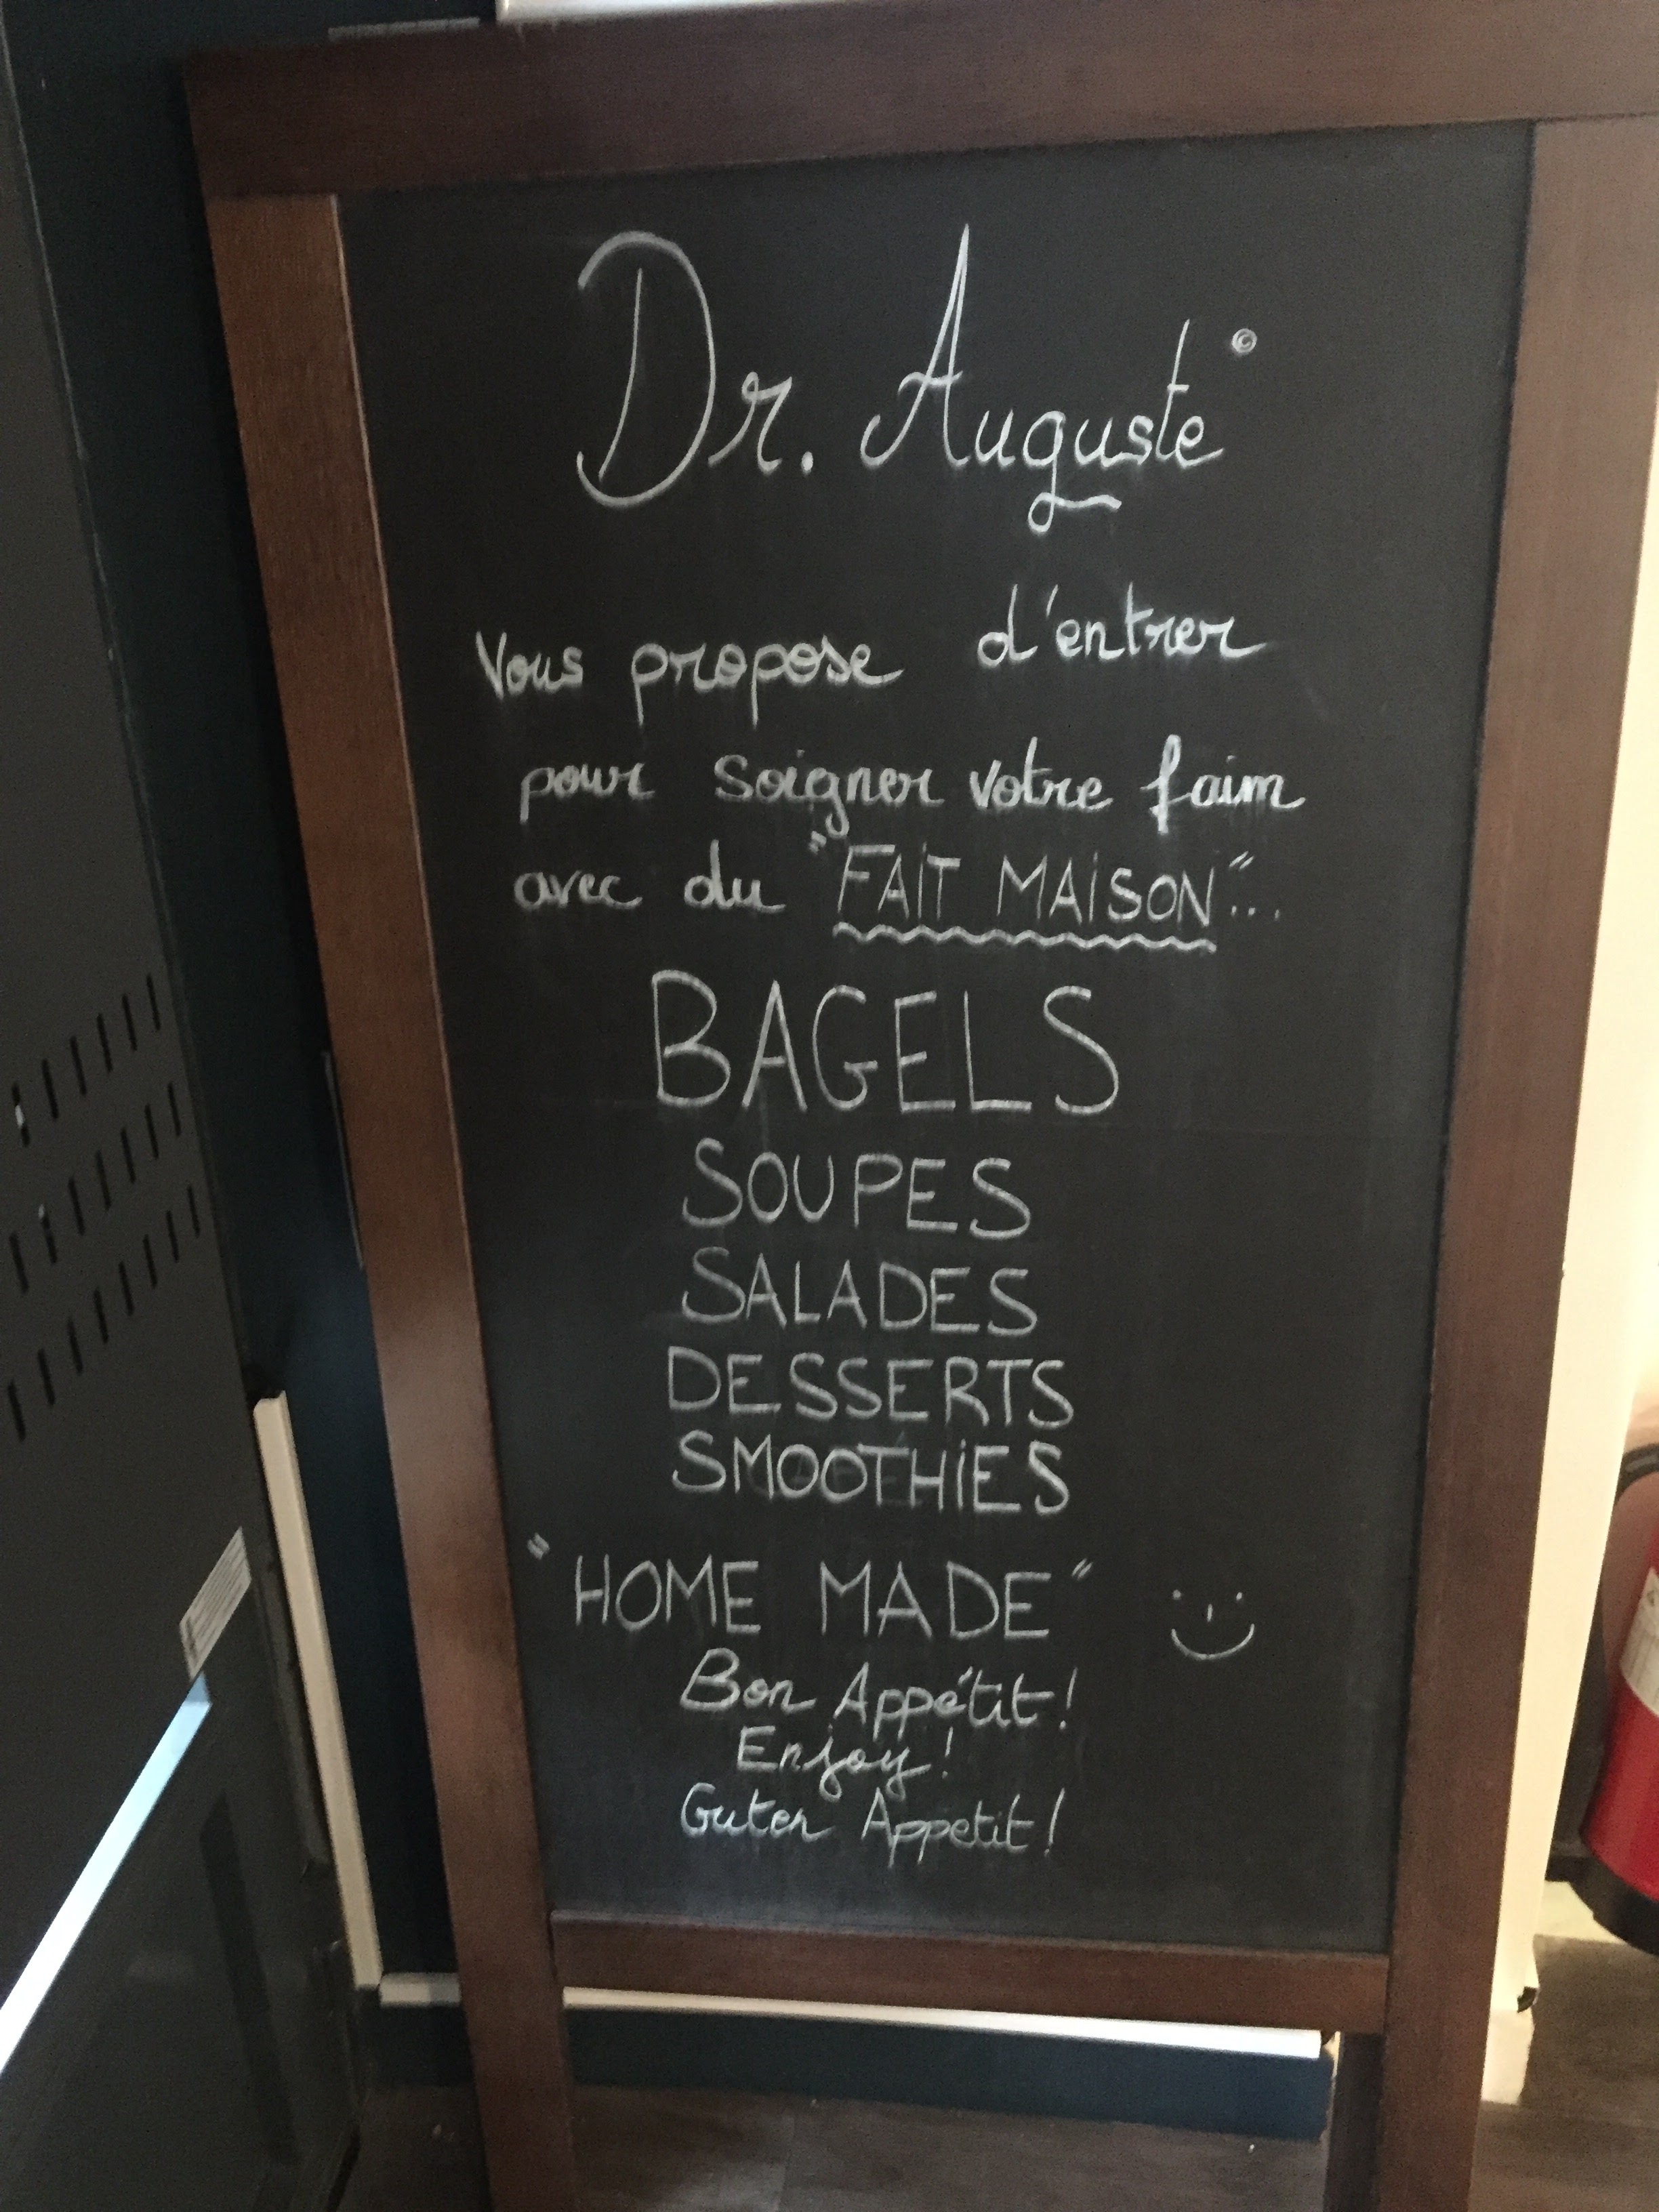 Dr. Auguste ©
Vous propose d'entrer
pour soigner votre faim
avec du "FAIT MAISON"...
BAGELS
SOUPES
SALADES
DESSERTS
SMOOTHIES
"HOME MADE"
Bon Appétit!
Enjoy!
Guten Appetit!